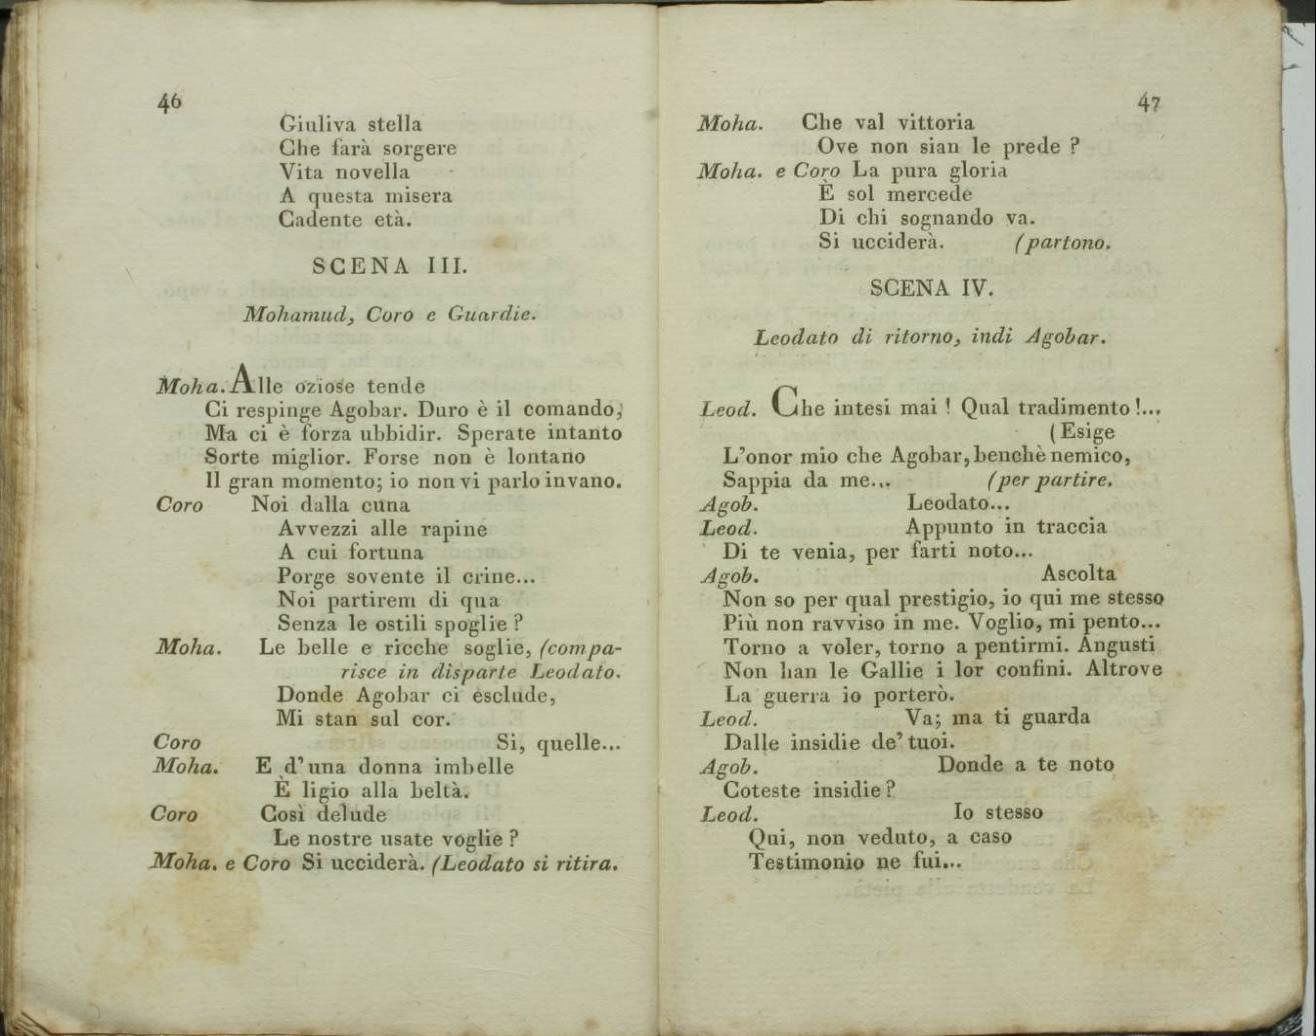 46
Giuliva stella
Che farà sorgere
Vita novella
A questa misera
Cadente età.
SCENA III.
Mohamud, Coro e Guardie.
Moha. Alle oziose tende
Ci respinge Agobar. Duro è il comando,
Ma ci è forza ubbidir. Sperate intanto
Sorte miglior. Forse non è lontano
Il gran momento; io non vi parlo invano.
Coro Noi dalla cuna
Avvezzi alle rapine
A cui fortuna
Porge sovente il crine...
Noi partirem di qua
Senza le ostili spoglie?
Moha. Le belle e ricche soglie, (compa-
risce in disparte Leodato.
Donde Agobar ci esclude,
Mi stan sul cor.
Coro Si, quelle...
Moha. E d'una donna imbelle
È ligio alla beltà.
Coro Così delude
Le nostre usate voglie?
Moha. e Coro Si ucciderà. (Leodato si ritira.
47
Moha. Che val vittoria
Ove non sian le prede?
Moha. e Coro La pura gloria
È sol mercede
Di chi sognando va.
Si ucciderà. (partono.
SCENA IV.
Leodato di ritorno, indi Agobar.
Leod. Che intesi mai! Qual tradimento!...
(Esige
L'onor mio che Agobar, benchè nemico,
Sappia da me... (per partire.
Agob. Leodato...
Leod. Appunto in traccia
Di te venia, per farti noto...
Agob. Ascolta
Non so per qual prestigio, io qui me stesso
Più non ravviso in me. Voglio, mi pento...
Torno a voler, torno a pentirmi. Angusti
Non han le Gallie i lor confini. Altrove
La guerra io porterò.
Leod. Va; ma ti guarda
Dalle insidie de' tuoi.
Agob. Donde a te noto
Coteste insidie?
Leod. Io stesso
Qui, non veduto, a caso
Testimonio ne fui...